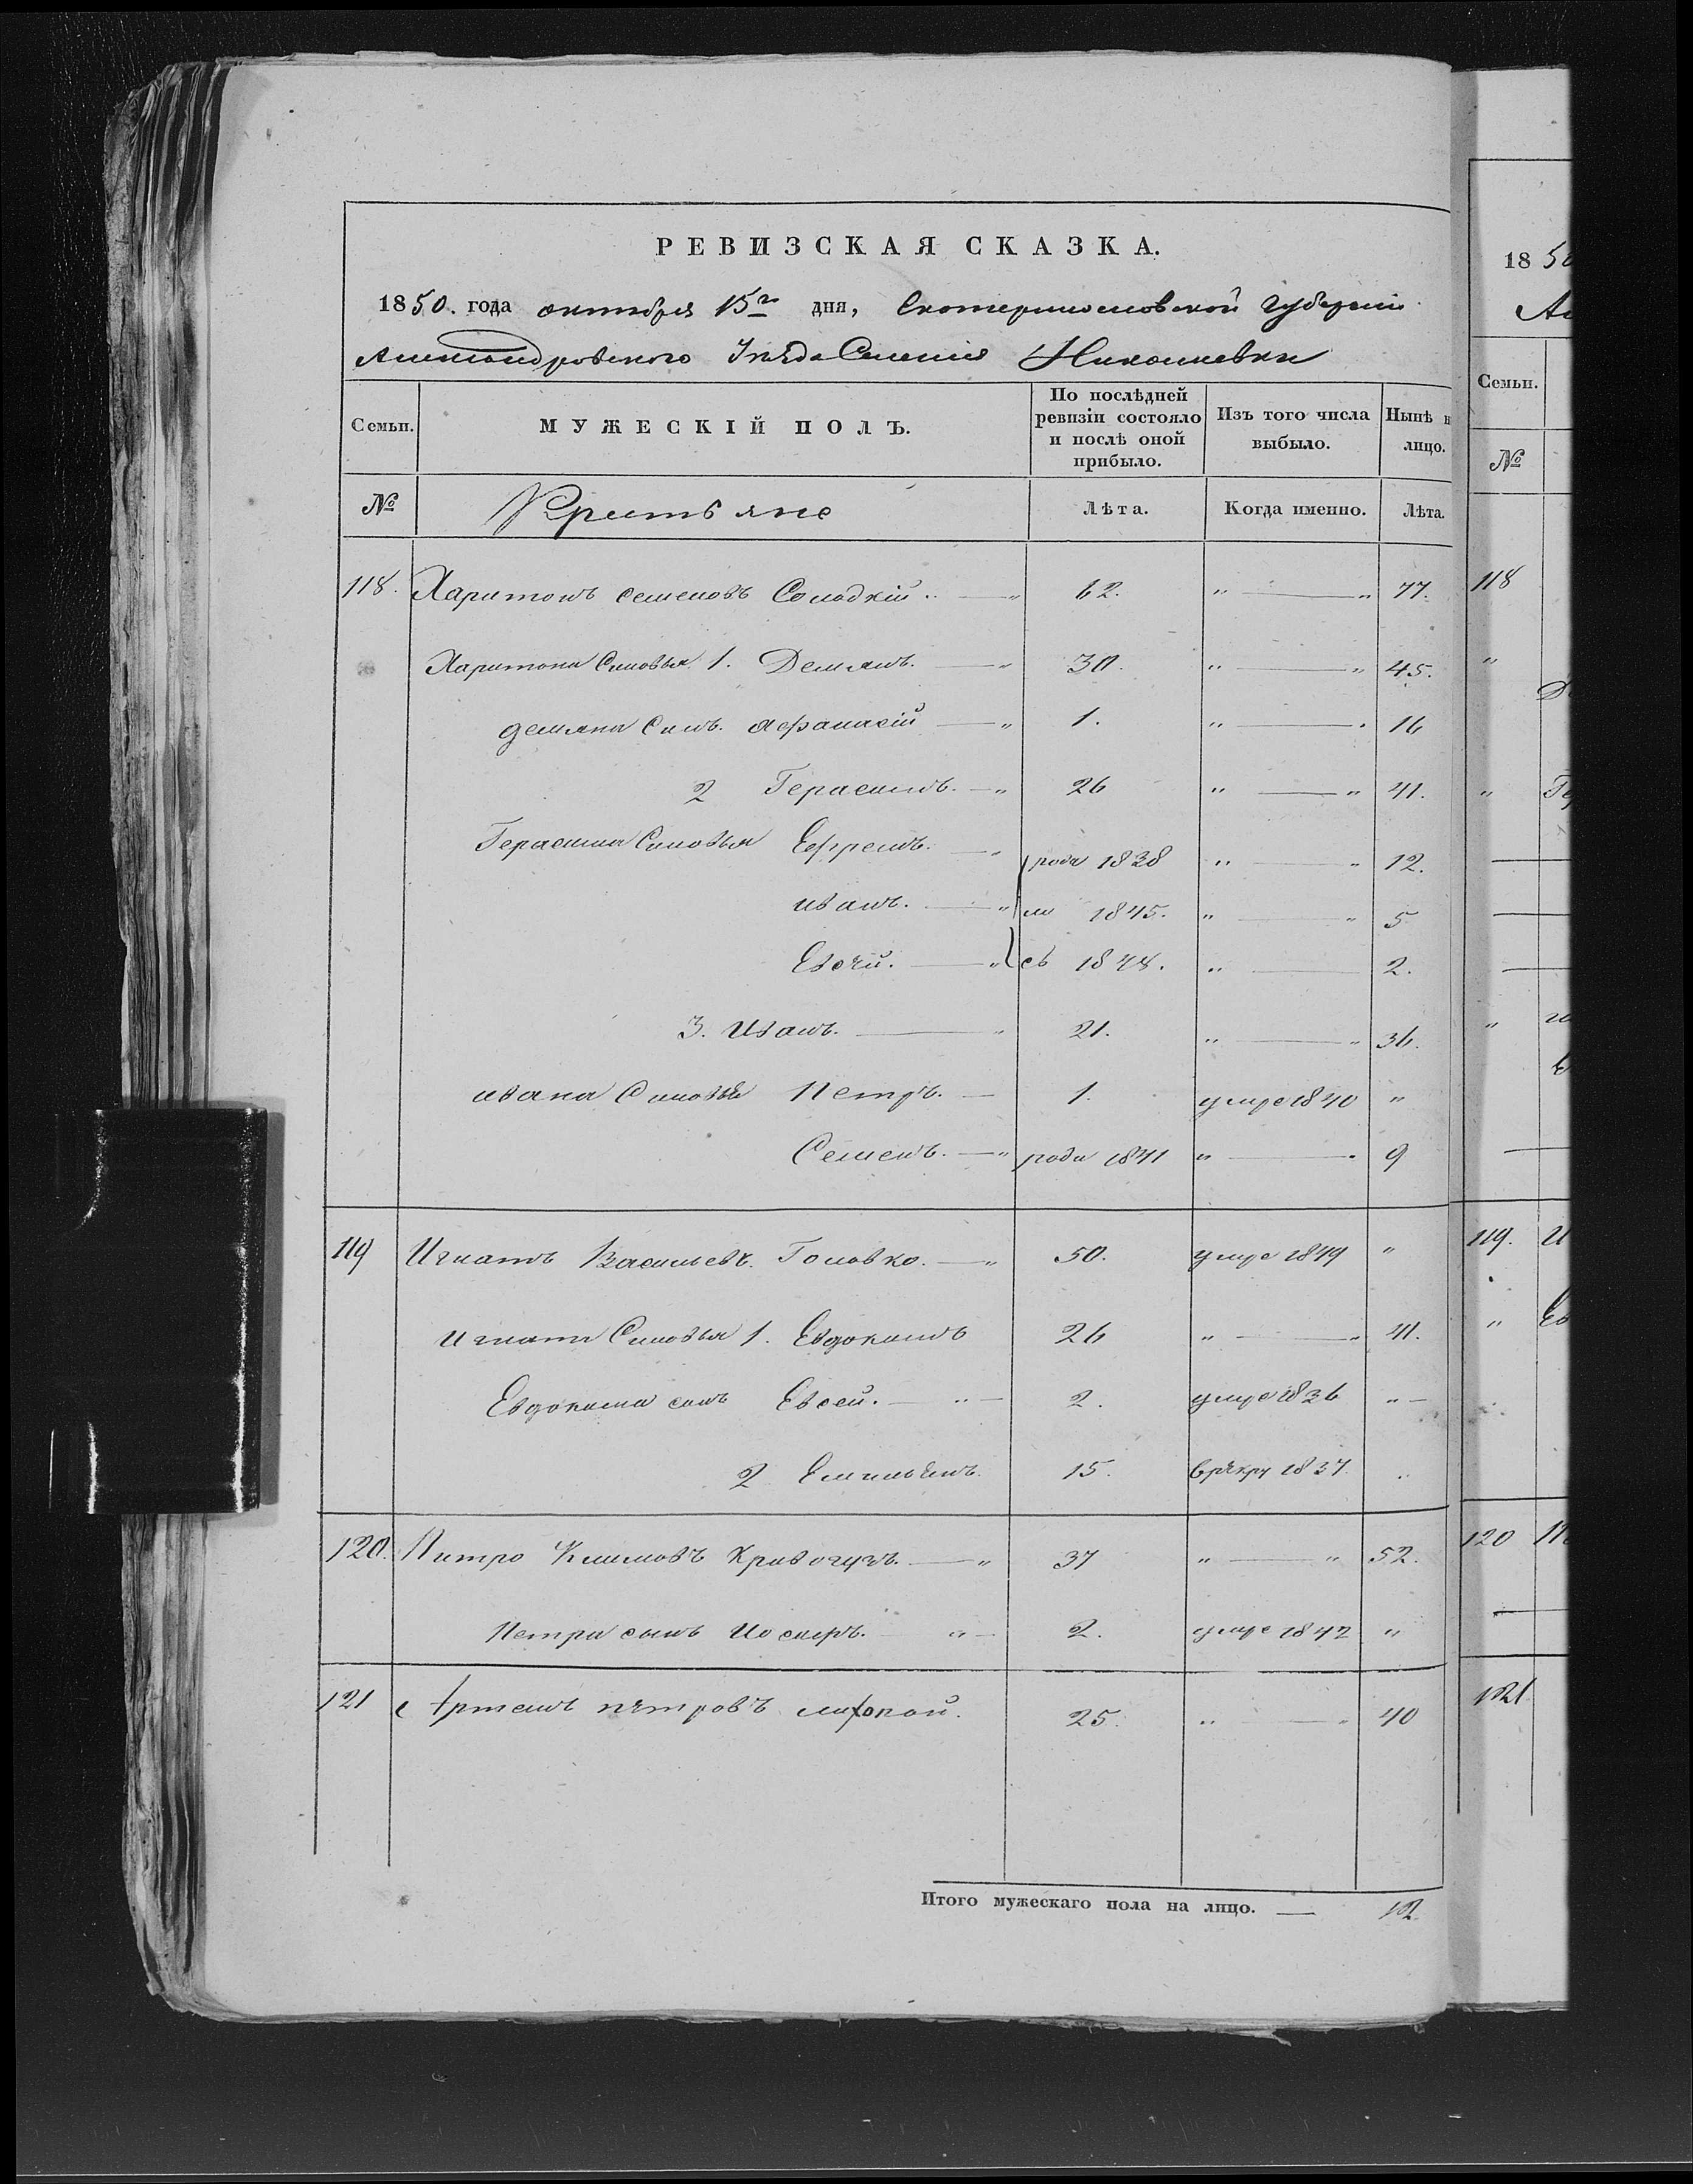 РЕВИЗСКАЯ СКАЗКА.
1850. года октября 15го дня, Екатеринославской Губернии
Александровского Уезда Селения Николаевки
Семьи. МУЖЕСКІЙ ПОЛЪ. По послѣдней ревизіи состояло и послѣ оной прибыло. Изъ того числа выбыло. Нынѣ на лицо.
№ Крестьяне Лѣта. Когда именно. Лѣта.
118. Харитонъ семеновъ Солодкій.. — „ 62. „ — „ 77.
Харитона Синовья 1. Демянъ. — „ 30. „ — „ 45.
демяна Синъ. Афанасій — „ 1. „ — . 16
2 Герасимъ. — „ 26 „ — „ 41.
Герасима Синовья Ефремъ. — „ роди 1838 „ — „ 12.
иванъ. — „ ли 1845. „ — „ 5
Евсей. — „ сь 1848. „ — 2.
3. Иванъ. — „ 21. „ — „ 36.
ивана Синовья Петръ. — 1. умре 1840 „
Семенъ. — „ роди 1841 „ — . 9
119 Игнатъ Васильевъ. Головко. — „ 50. умре 1849 „
игната Синовья 1. Евдокимъ 26 „ — „ 41.
Евдокима синъ Евсей. — „ — 2. умре 1836 „ —
2 Емильянъ. 15. врекру 1837. „
120. Питро Климовъ Кривогузъ. — „ 37 „ — „ 52.
Петра сынъ Иосифъ. — „ — 2. умре 1842 „
121 Артемъ петровъ 25. „ — „ 40
Итого мужескаго пола на лицо. — 12.
18 50
Семьи.
№
118
„
„
„
119. И
„ Ев
120
121